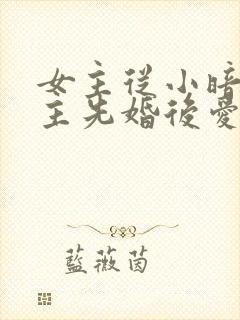 女主從小暗
主先婚後愛
藍薇茵